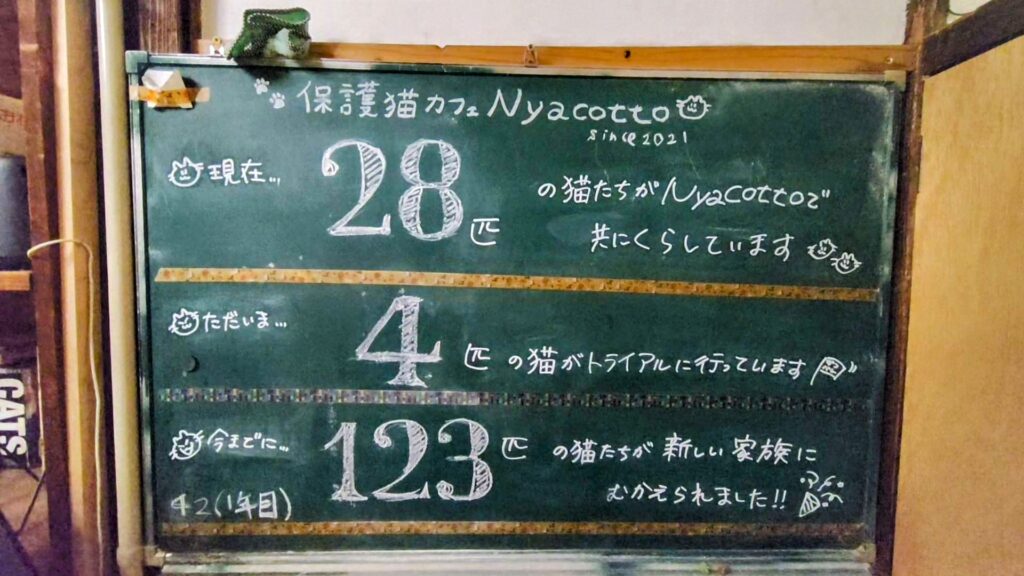 保護猫カフェNyacotto
since 2021
現在...
28匹
の猫たちがNyacottoで
共にくらしています
ただいま...
4匹の猫がトライアルに行っています
今までに...
123匹
の猫たちが新しい家族に
むかえられました!!
42(1年目)
CATS